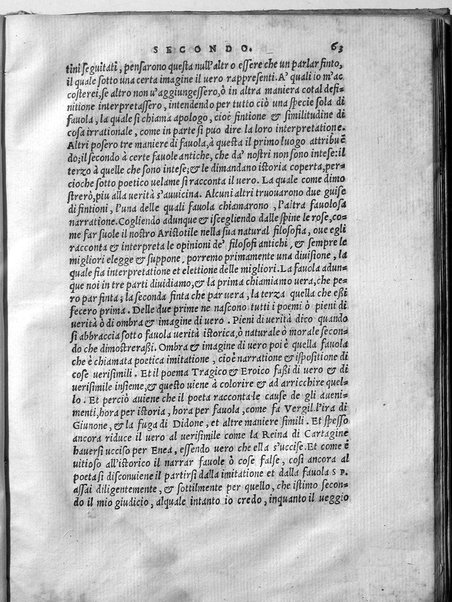 SECONDO. 63
tini seguitati, pensarono questa null'altro essere che un parlar finto,
il quale sotto una certa imagine il uero rappresenti. A' quali io m'ac
costerei, se altro non u'aggiungessero, ò in altra maniera cotal defi-
nitione interpretassero, intendendo per tutto ciò una specie sola di
fauola, la quale si chiama apologo, cioè fintione & similitudine di
cosa irrationale, come in parte si può dire la loro interpretatione.
Altri posero tre maniere di fauola, à questa il primo luogo attribuē
do; il secondo à certe fauole antiche, che da' nostri non sono intese: il
terzo à quelle che sono intese; & le dimandano istoria coperta, per-
cioche sotto poetico uelame si racconta il uero. La quale come dimo
strerò, piu alla uerità s'auuicina. Alcuni altri truouarono due guise
di fintioni, l'una delle quali fauola chiamarono, l'altra fauolosa
narratione. Cogliendo adunque & iscegliendo dalle spine le rose, co-
me far suole il nostro Aristotile nella sua natural filosofia, oue egli
racconta & interpreta le opinioni de' filosofi antichi, & sempre le
migliori elegge & suppone, porremo primamente una diuisione, la
quale sia interpretatione et elettione delle migliori. La fauola adun-
que noi in tre parti diuidiamo, & la prima chiamiamo uera, che pe-
ro par finta; la seconda finta che par uera, la terza quella che eßi
fecero prima. Delle due prime ne nascono tutti i poemi ò pieni di
uerità ò di ombra & imagine di uero. Pieni di uerità dico quando
si abbraccia sotto fauola uerità istorica, ò naturale ò morale secon-
do che dimostreraßi. Ombra & imagine di uero poi è quella fauola
che è chiamata poetica imitatione, cioè narratione & ispositione di
cose uerisimili. Et il poema Tragico & Eroico faßi di uero & di
uerisimile insieme, & questo uiene à colorire & ad arricchire quel-
lo. Et perciò auiene che il poeta racconta le cause de gli aueni-
menti, hora per istoria, hora per fauola, come fa Vergil. l'ira di
Giunone, & la fuga di Didone, et altre maniere simili. Et spesso
ancora riduce il uero al uerisimile come la Reina di Cartagine
hauersi ucciso per Enea, essendo uero che ella s'uccise. Et come è
uitioso all'istorico il narrar fauole ò cose false, così ancora al
poeta si disconuiene il partirsi dalla imitatione et dalla fauola SP.
assai diligentemente, & sottilmente per quello, che istimo secon-
do il mio giudicio, al quale intanto io credo, in quanto il ueggio